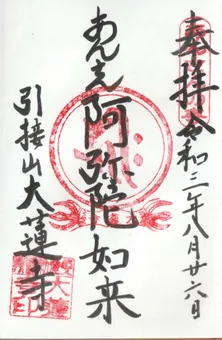 奉拝
令和二年八月廿六日
あんざん阿弥陀如来
引接山大蓮寺